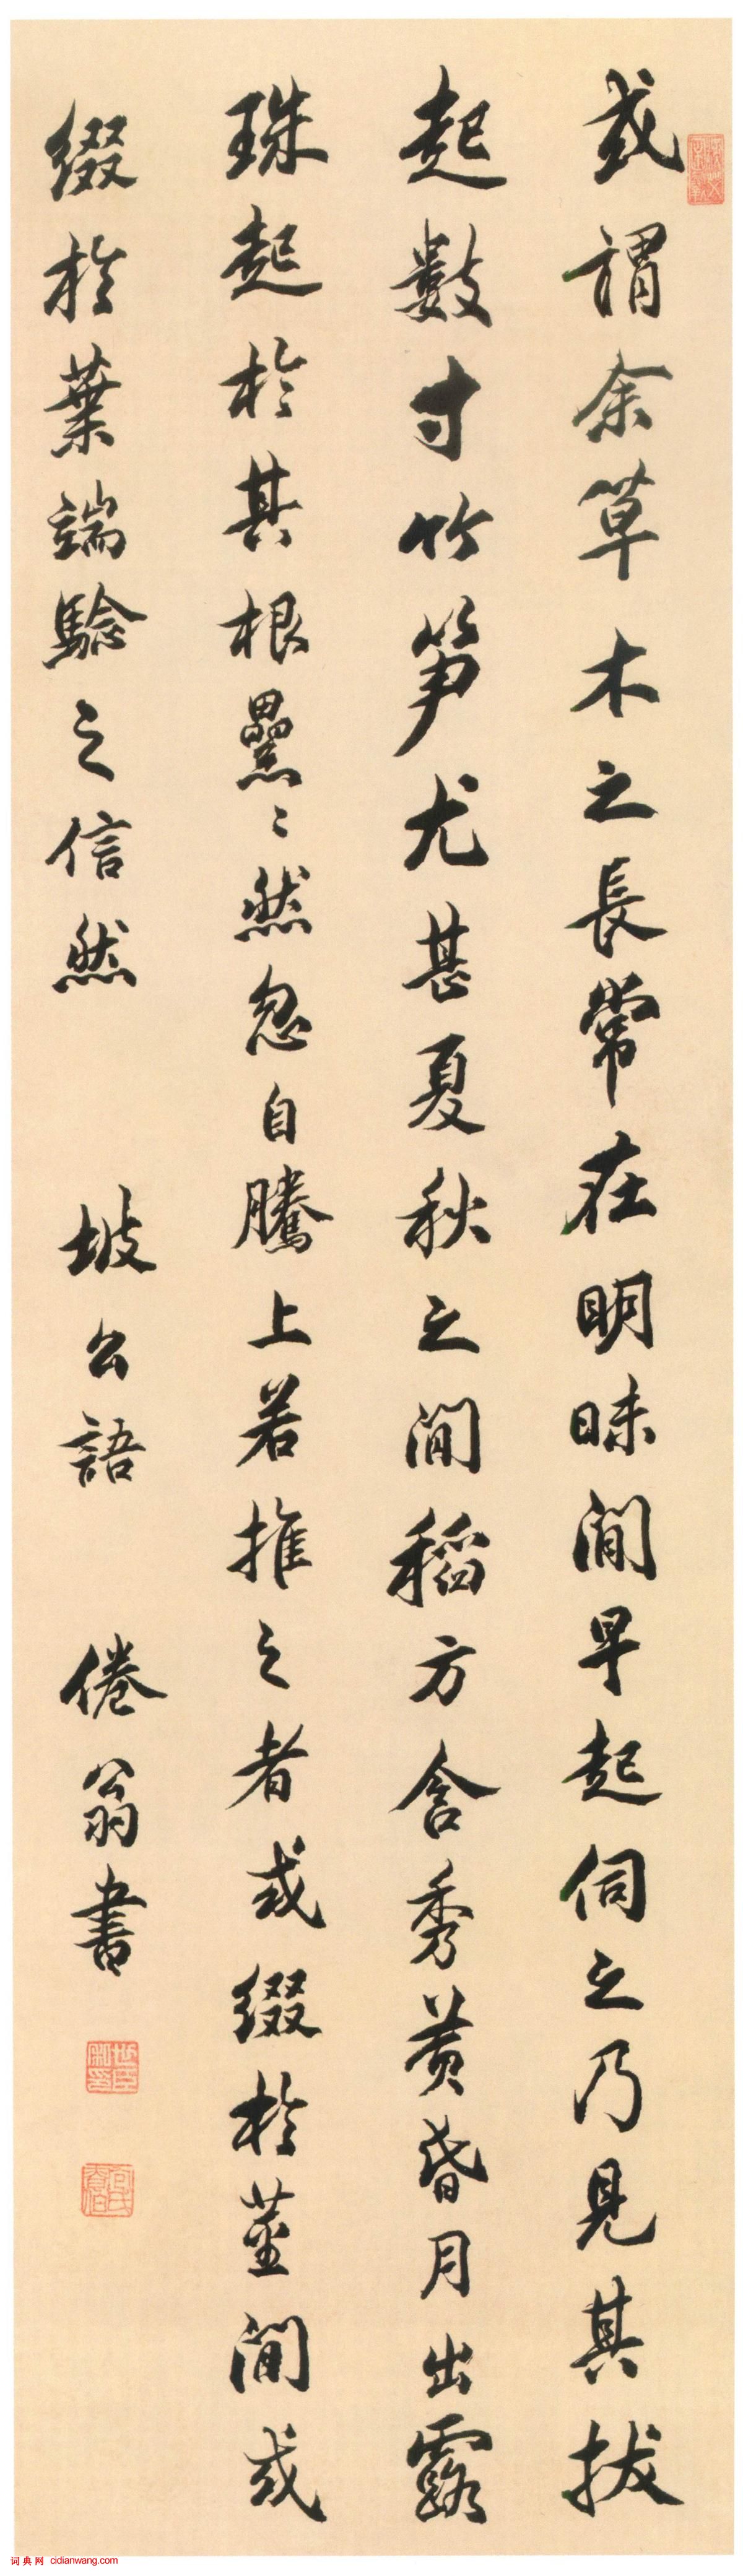 或謂余草木之長常在明昧間早起伺之乃見其拔
起數寸竹笋尤甚夏秋之間稻方含秀黄昏月出露
珠起於其根纍〻然忽自騰上若推之者或綴於莖間或
綴於葉端騐之信然 坡公語 倦翁書
世臣私印
词典网 cidianwang.com